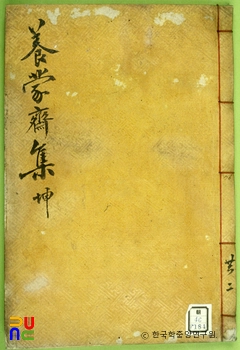 養蒙齋集 坤
共二
ⓒ 한국학중앙연구원